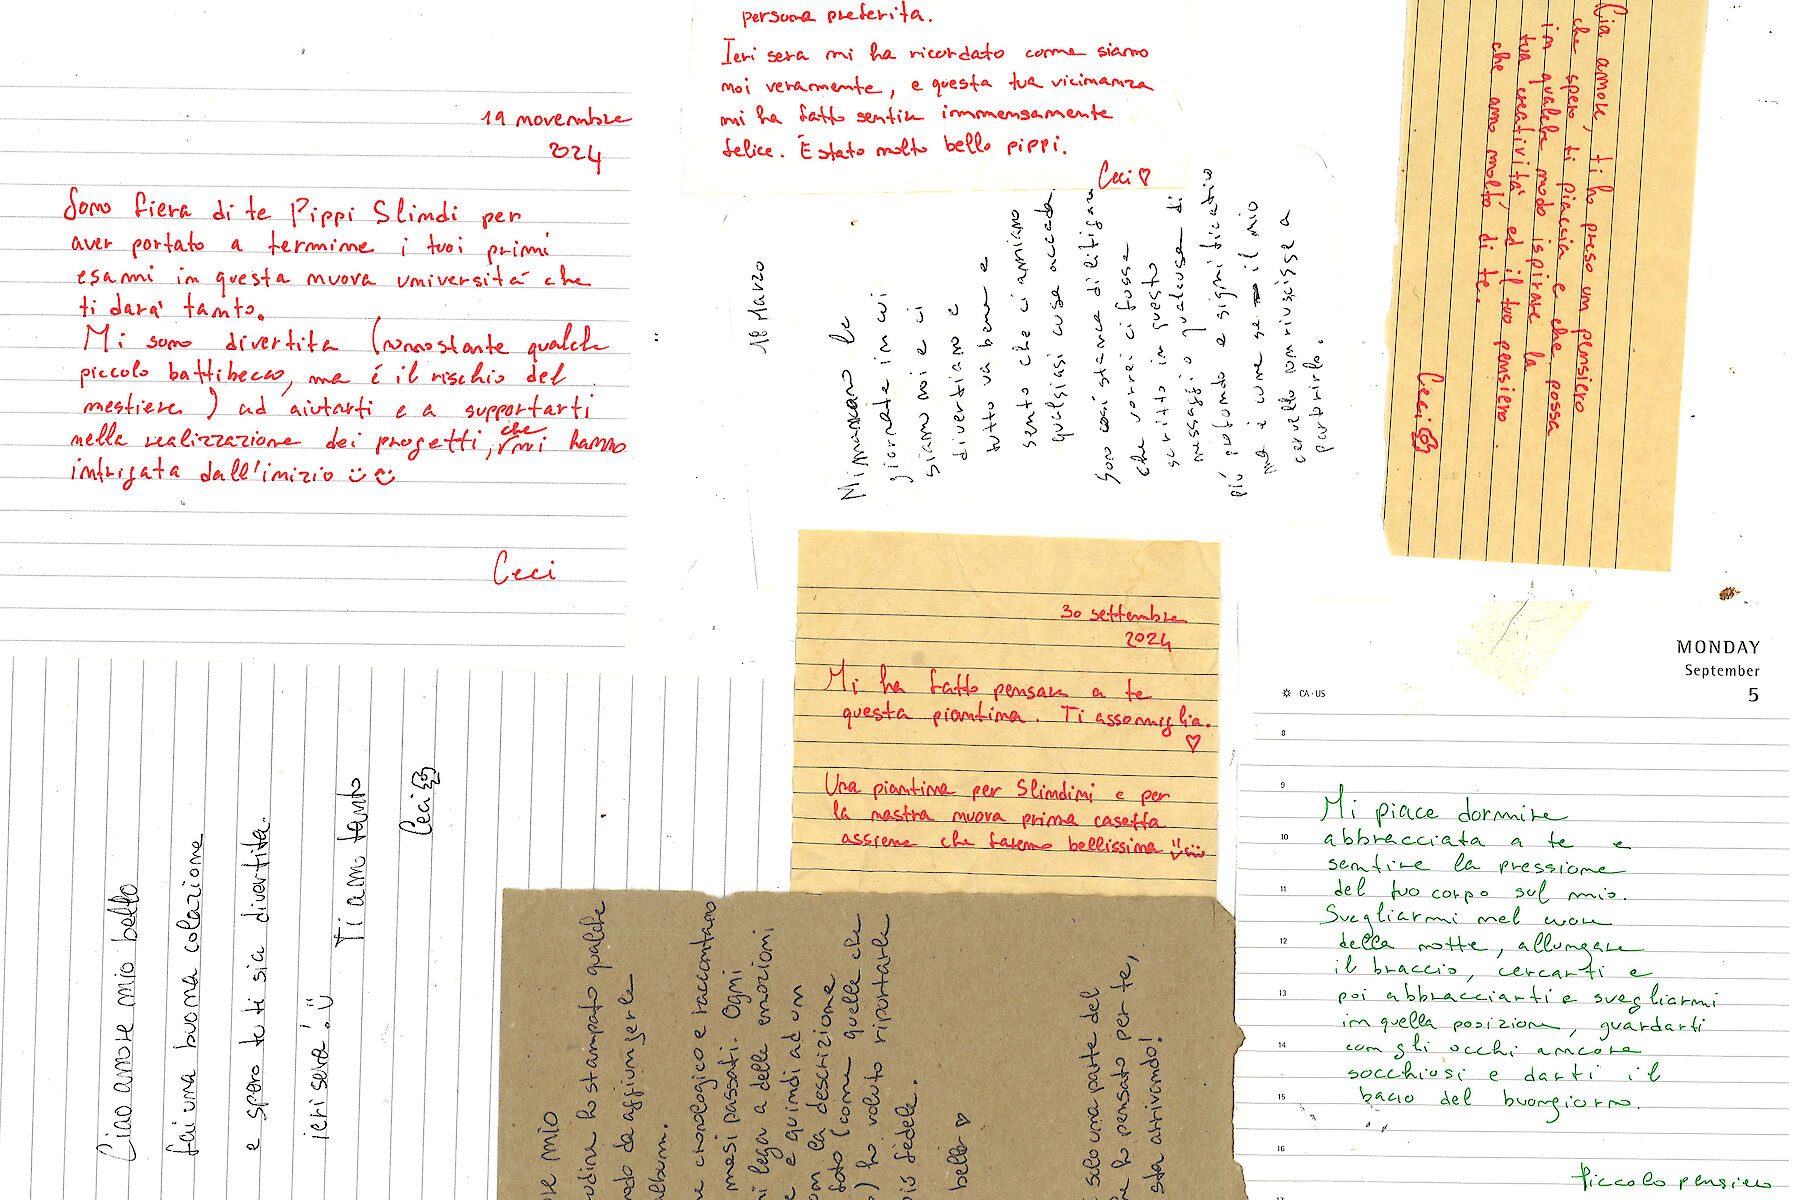 persona preferita.
Ieri sera mi ha ricordato come siamo
noi veramente, e questa tua vicinanza
mi ha fatto sentire immensamente
felice. È stato molto bello pippi.
Ceci ♡
19 novembre
2024
Sono fiera di te Pippi Slimdi per
aver portato a termine i tuoi primi
esami in questa nuova università che
ti darà tanto.
Mi sono divertita (nonostante qualche
piccolo battibecco, ma é il rischio del
mestiere) ad aiutarti e a supportarti
nella realizzazione dei progetti, che mi hanno
intrigata dall'inizio
Ceci
18 Marzo
Mi mancano le
giornate in cui
siamo noi e ci
divertiamo e
tutto va bene e
sento che ci amiamo
qualsiasi cosa accada
Sono così stanca di litigare
che vorrei ci fosse
scritto in questo
messaggio qualcosa di
più profondo e significativo
ma è come se il mio
cervello non riuscisse a
partorirlo.
Ciao amore, ti ho preso un pensiero
che spero ti piaccia e che possa
in qualche modo ispirare la
tua creatività ed il tuo pensiero.
che amo molto di te.
Ceci
30 settembre
2024
Mi ha fatto pensare a te
questa piantina. Ti assomiglia.
♡
Una piantina per Slimdini e per
la nostra nuova prima casetta
assieme che faremo bellissima
MONDAY
September
5
CA·US
8
9
10
11
12
13
14
15
16
Mi piace dormire
abbracciata a te e
sentire la pressione
del tuo corpo sul mio.
Svegliarmi nel cuore
della notte, allungare
il braccio, cercarti e
poi abbracciarti e svegliarmi
in quella posizione, guardarti
con gli occhi ancora
socchiusi e darti il
bacio del buongiorno.
Piccolo pensiero
Ciao amore mio bello
fai una buona colazione
e spero tu ti sia divertita.
ieri sera!
Ti amo tanto
Ceci
mio
ho stampato qualche
da aggiungerle
album.
cronologico e raccontano
mesi passati. Ogni
lega a delle emozioni
e quindi ad un
con la descrizione
foto (come quelle che
) ho voluto riportarle
fedele.
bello ♡
solo una parte del
ho pensato per te,
sta arrivando!